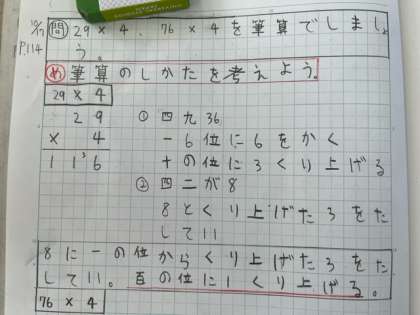 10/17 問 29×4、76×4を筆算でしましょ
P.114 う。
め 筆算のしかたを考えよう。
29×4
29 ① 四九36
× 4 一6位に6をかく
11³6 十の位に3くり上げる
② 四二が8
8とくり上げた3をた
して11
8に一の位からくり上げた3をた
して11。百の位に1くり上げる。
76×4